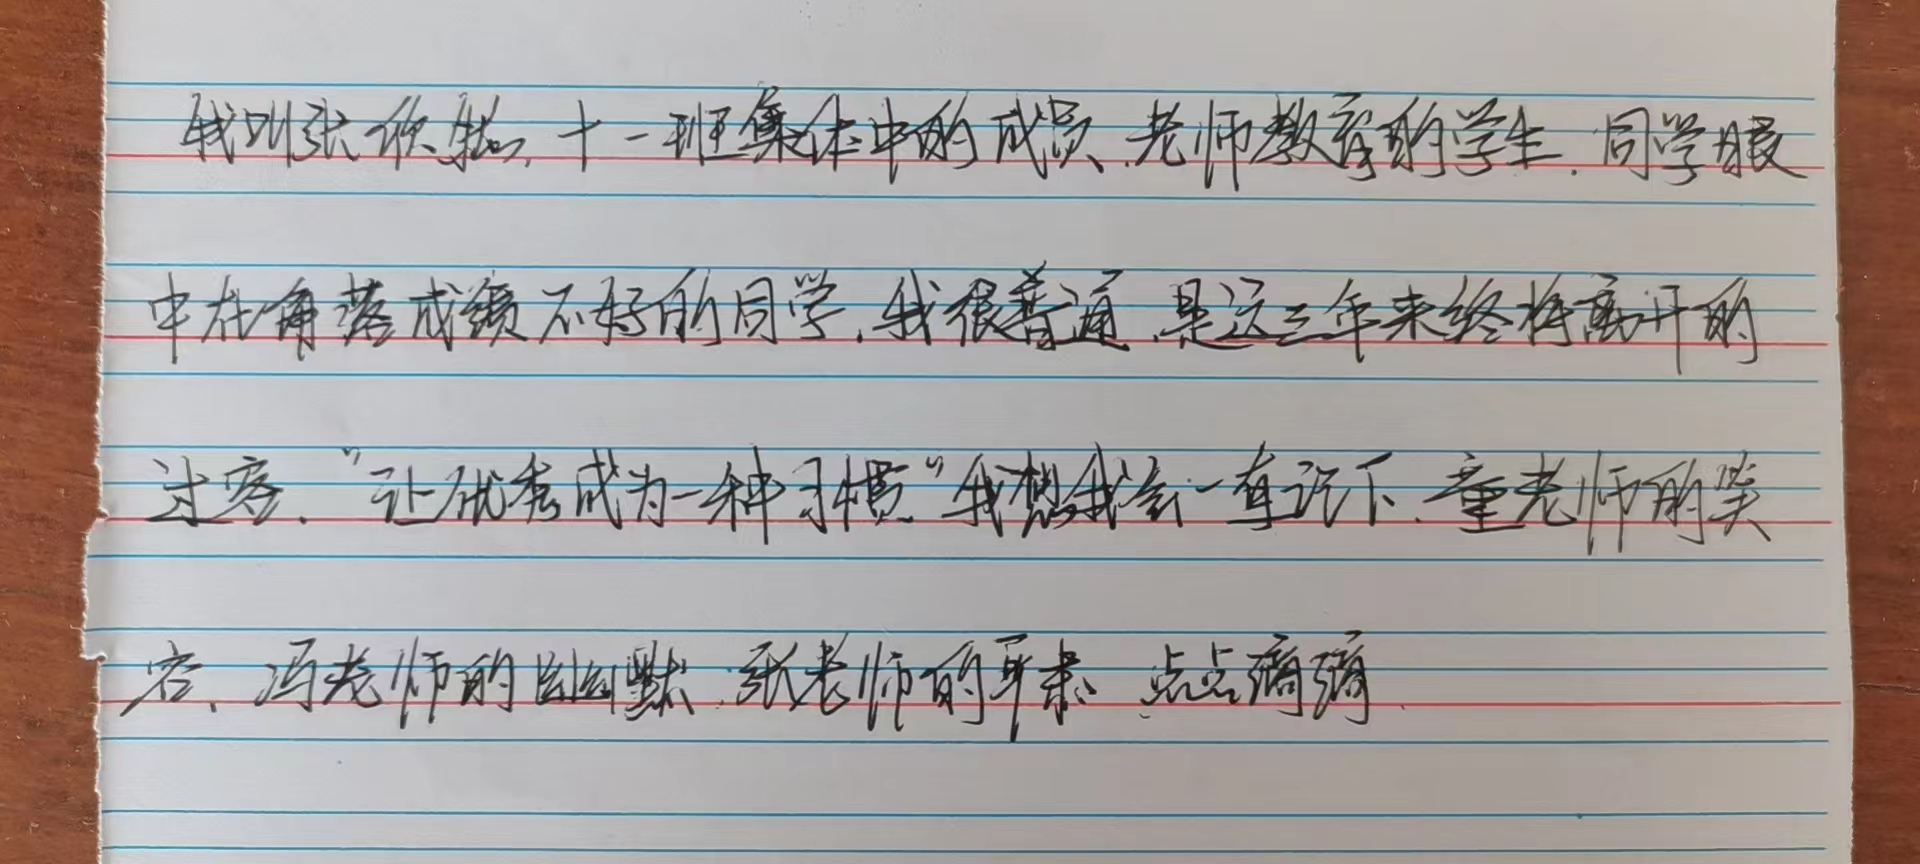 我叫张欣, 十一班集体中的成员, 老师教育的学生, 同学眼
中在角落成绩不好的同学, 我很普通, 是这三年来终将离开的
过客, "让优秀成为一种习惯" 我想我会一直记下, 童老师的笑
容, 冯老师的幽默, 张老师的, 点点滴滴